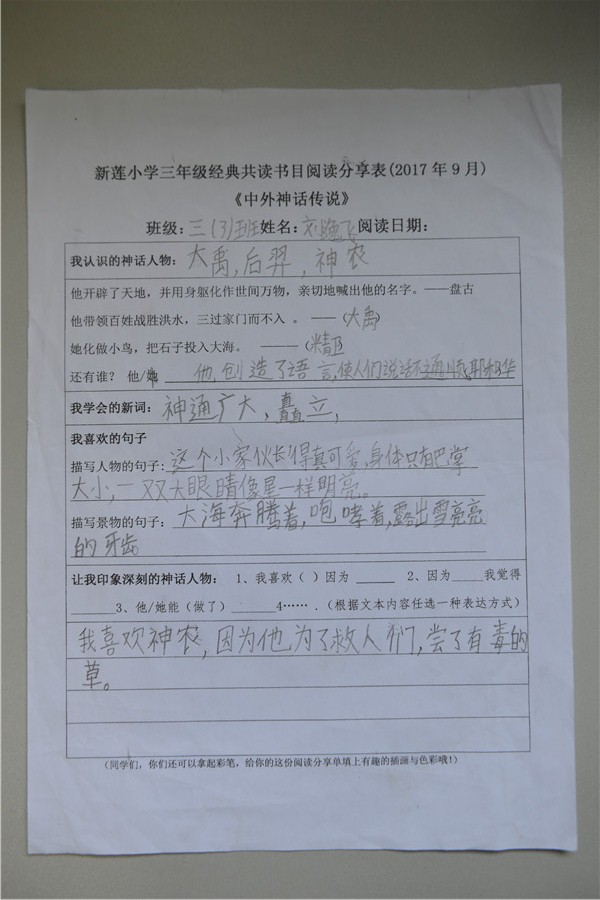 新莲小学三年级经典共读书目阅读分享表(2017年9月)
《中外神话传说》
班级:三(3)班姓名:阅读日期:
我认识的神话人物:大禹,后羿,神农
他开辟了天地,并用身躯化作世间万物,亲切地喊出他的名字。——盘古
他带领百姓战胜洪水,三过家门而不入 。 ——(大禹)
她化做小鸟,把石子投入大海。 ———(精卫)
还有谁? 他/她 他,创造了语言,使人们说话不通顺,耶和华
我学会的新词:神通广大,矗立,
我喜欢的句子
描写人物的句子:这个小家伙长得真可爱,身体只有巴掌
大小,一双大眼睛像星一样明亮。
描写景物的句子:大海奔腾着,咆哮着,露出雪亮亮
的牙齿
让我印象深刻的神话人物: 1、我喜欢( )因为 ______ 2、因为_____我觉得
______3、他/她能(做了)_______4…… .(根据文本内容任选一种表达方式)
我喜欢神农,因为他为了救人们,尝了有毒的
草。
(同学们,你们还可以拿起彩笔,给你的这份阅读分享单填上有趣的插画与色彩哦!)